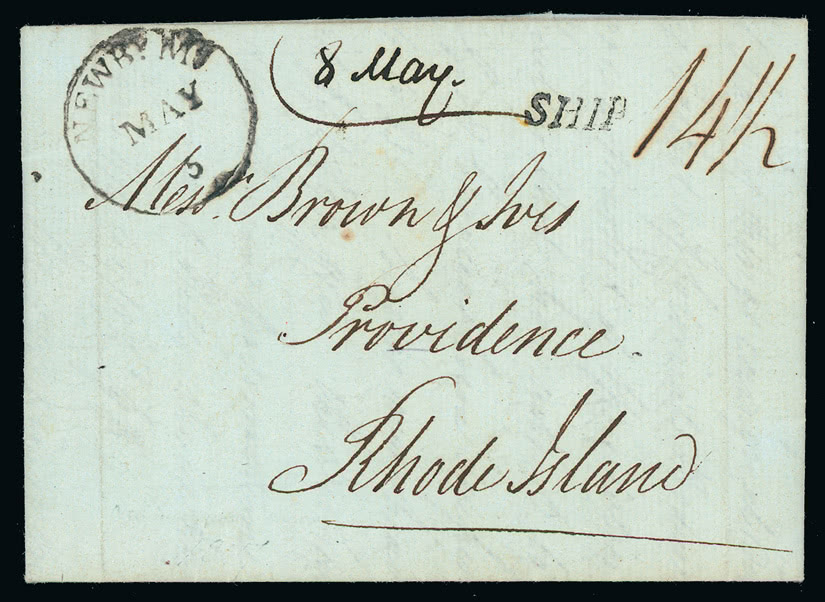 NEWBYPORT
MAY
5
8 May.
SHIP
14 1/2
Messrs. Brown & Ives
Providence.
Rhode Island